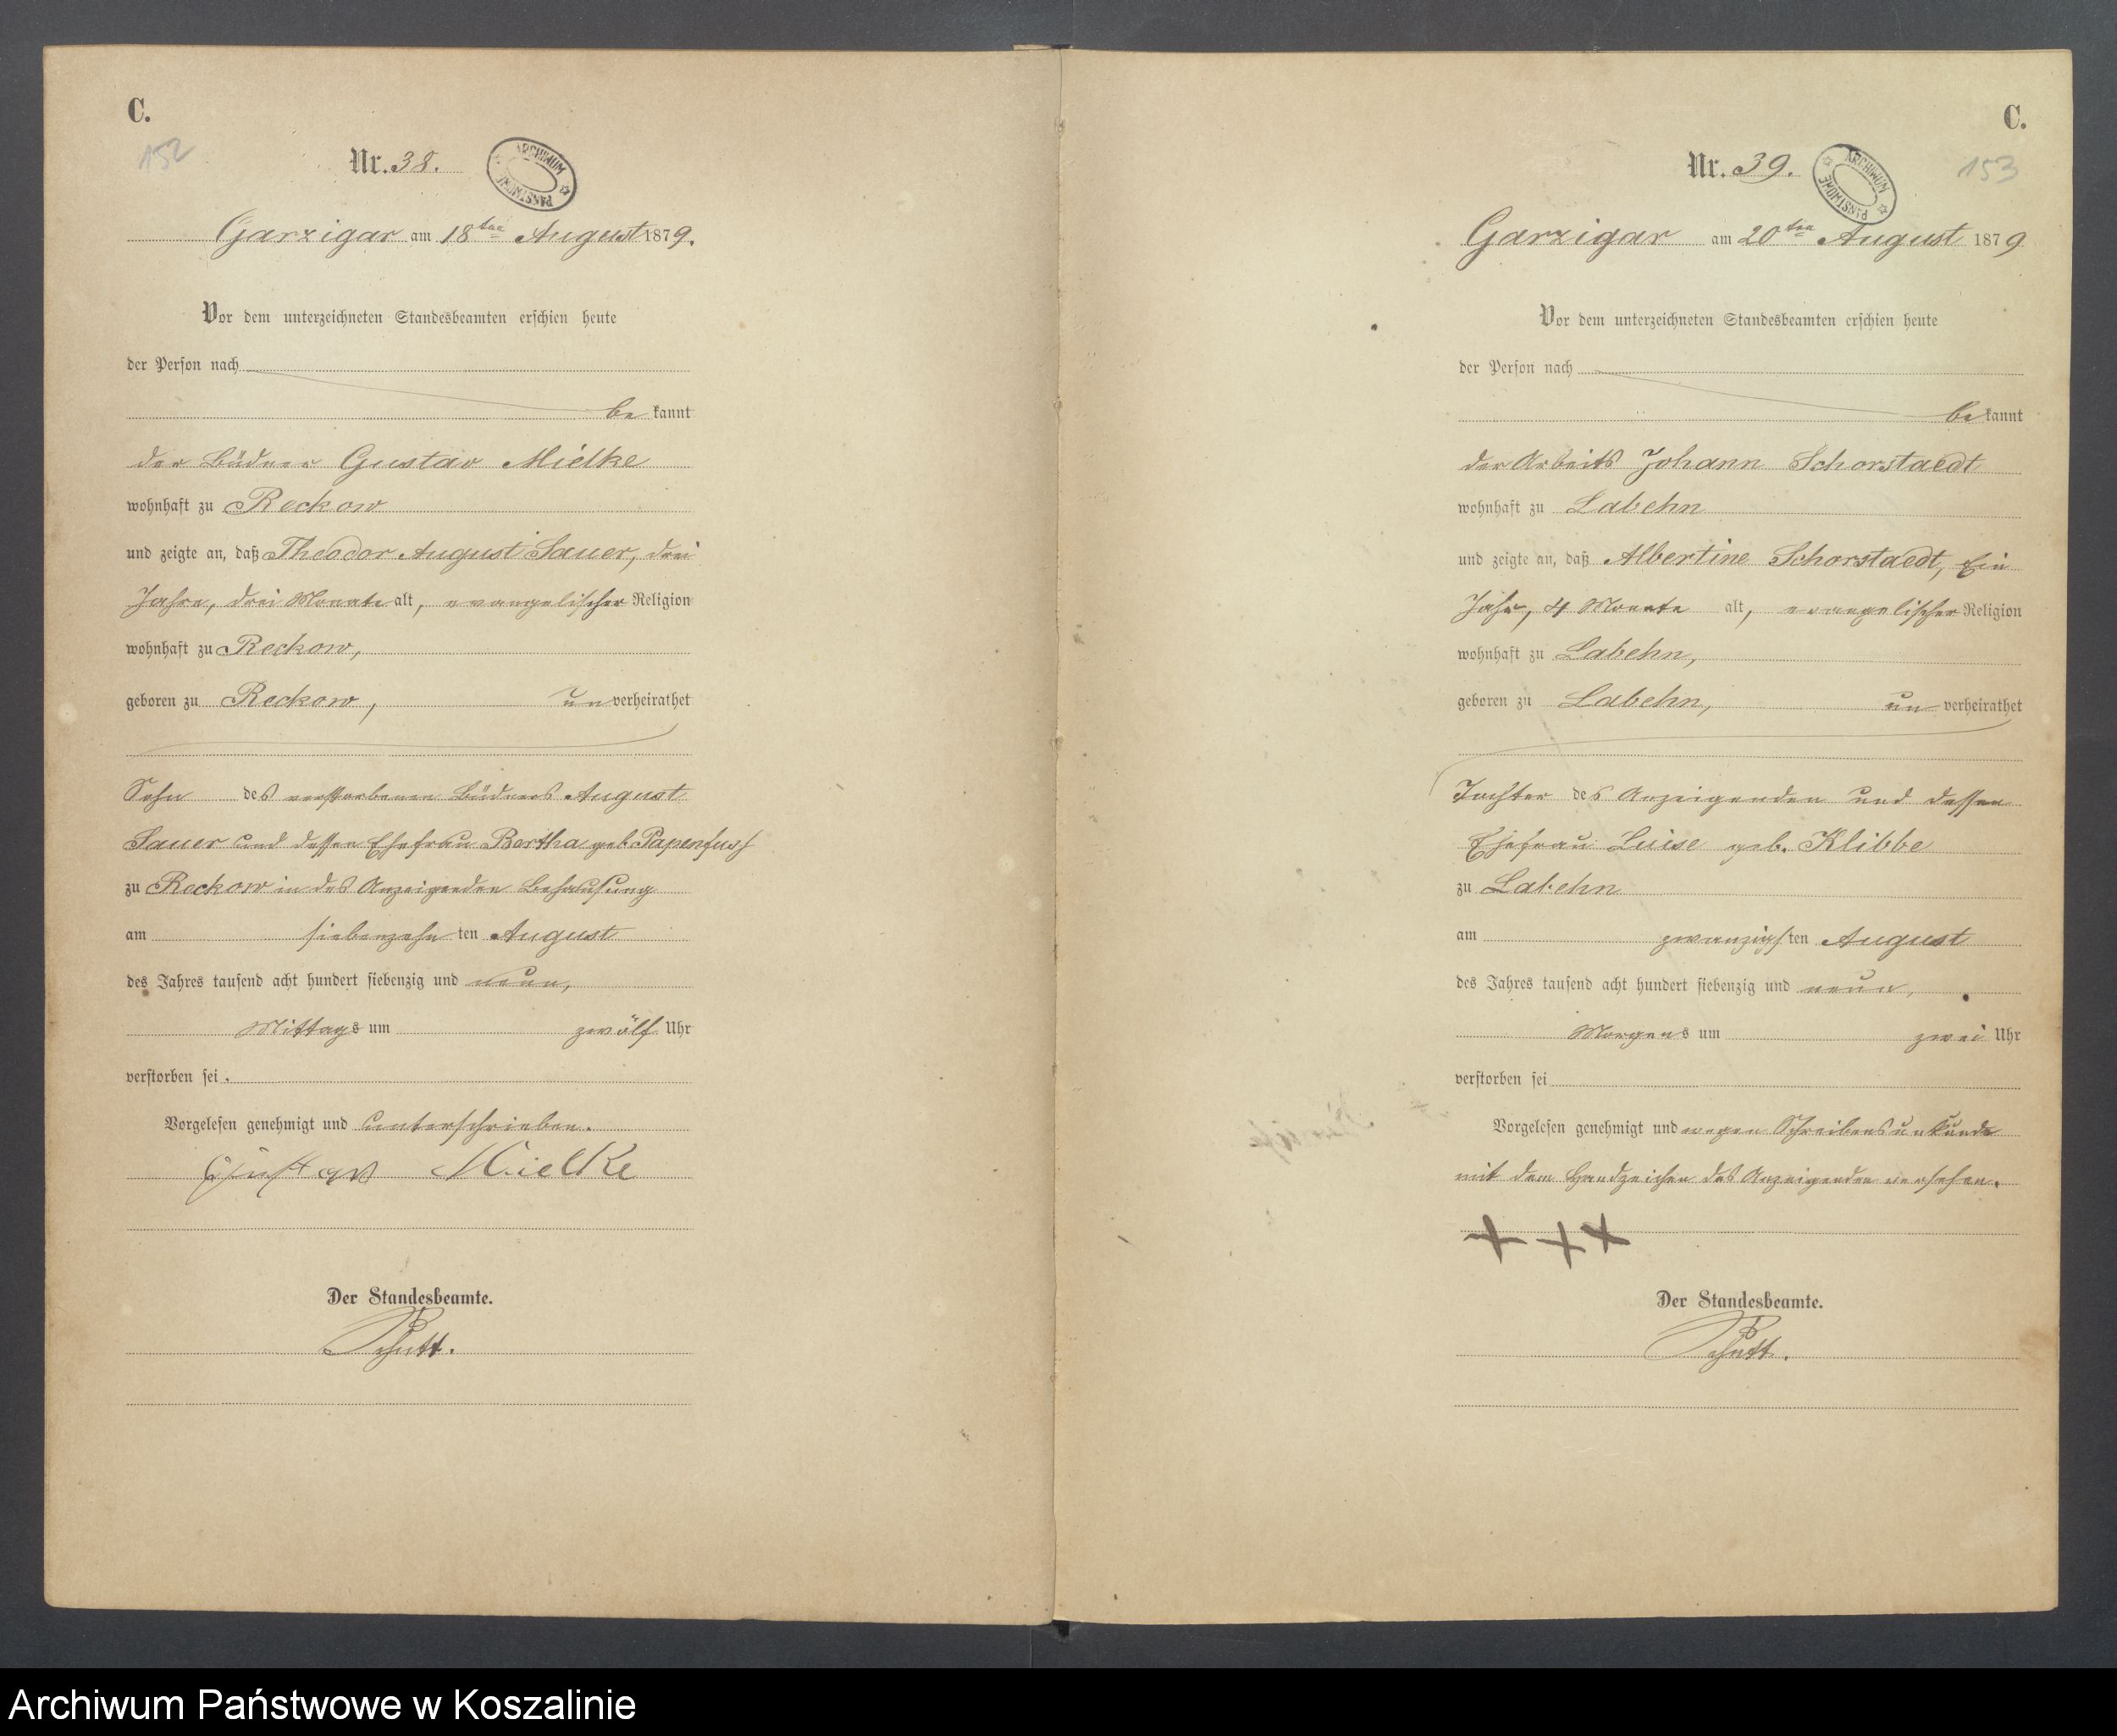 C.
152
Nr. 38.
ARCHIWUM PAŃSTWOWE
Garzigar am 18ten August 1879.
Vor dem unterzeichneten Standesbeamten erschien heute
der Person nach
be kannt
der Büdner Gustav Mielke
wohnhaft zu Reckow
und zeigte an, daß Theodor August Sauer, drei
Jahre, drei Monate alt, evangelischer Religion
wohnhaft zu Reckow,
geboren zu Reckow, un verheirathet
Sohn des verstorbenen Büdners August
Sauer und dessen Ehefrau Bertha geb. Papenfuss
zu Reckow in des Anzeigenden Behausung
am siebenzehn ten August
des Jahres tausend acht hundert siebenzig und neun,
Mittags um zwölf Uhr
verstorben sei.
Vorgelesen genehmigt und unterschrieben.
Gustav Mielke
Der Standesbeamte.
C.
153
Nr. 39.
ARCHIWUM PAŃSTWOWE
Garzigar am 20ten August 1879
Vor dem unterzeichneten Standesbeamten erschien heute
der Person nach
be kannt
der Arbeits Johann Schorstaedt
wohnhaft zu Labehn
und zeigte an, daß Albertine Schorstaedt, Ein
Jahr, 4 Monate alt, evangelischer Religion
wohnhaft zu Labehn,
geboren zu Labehn, un verheirathet
Tochter des Anzeigenden und dessen
Ehefrau Luise geb. Klibbe
zu Labehn
am zwanzigs ten August
des Jahres tausend acht hundert siebenzig und neun,
Morgens um zwei Uhr
verstorben sei
Vorgelesen genehmigt und wegen Schreibensunkunde
mit dem Handzeichen des Anzeigenden versehen.
+ + +
Der Standesbeamte.
Archiwum Państwowe w Koszalinie